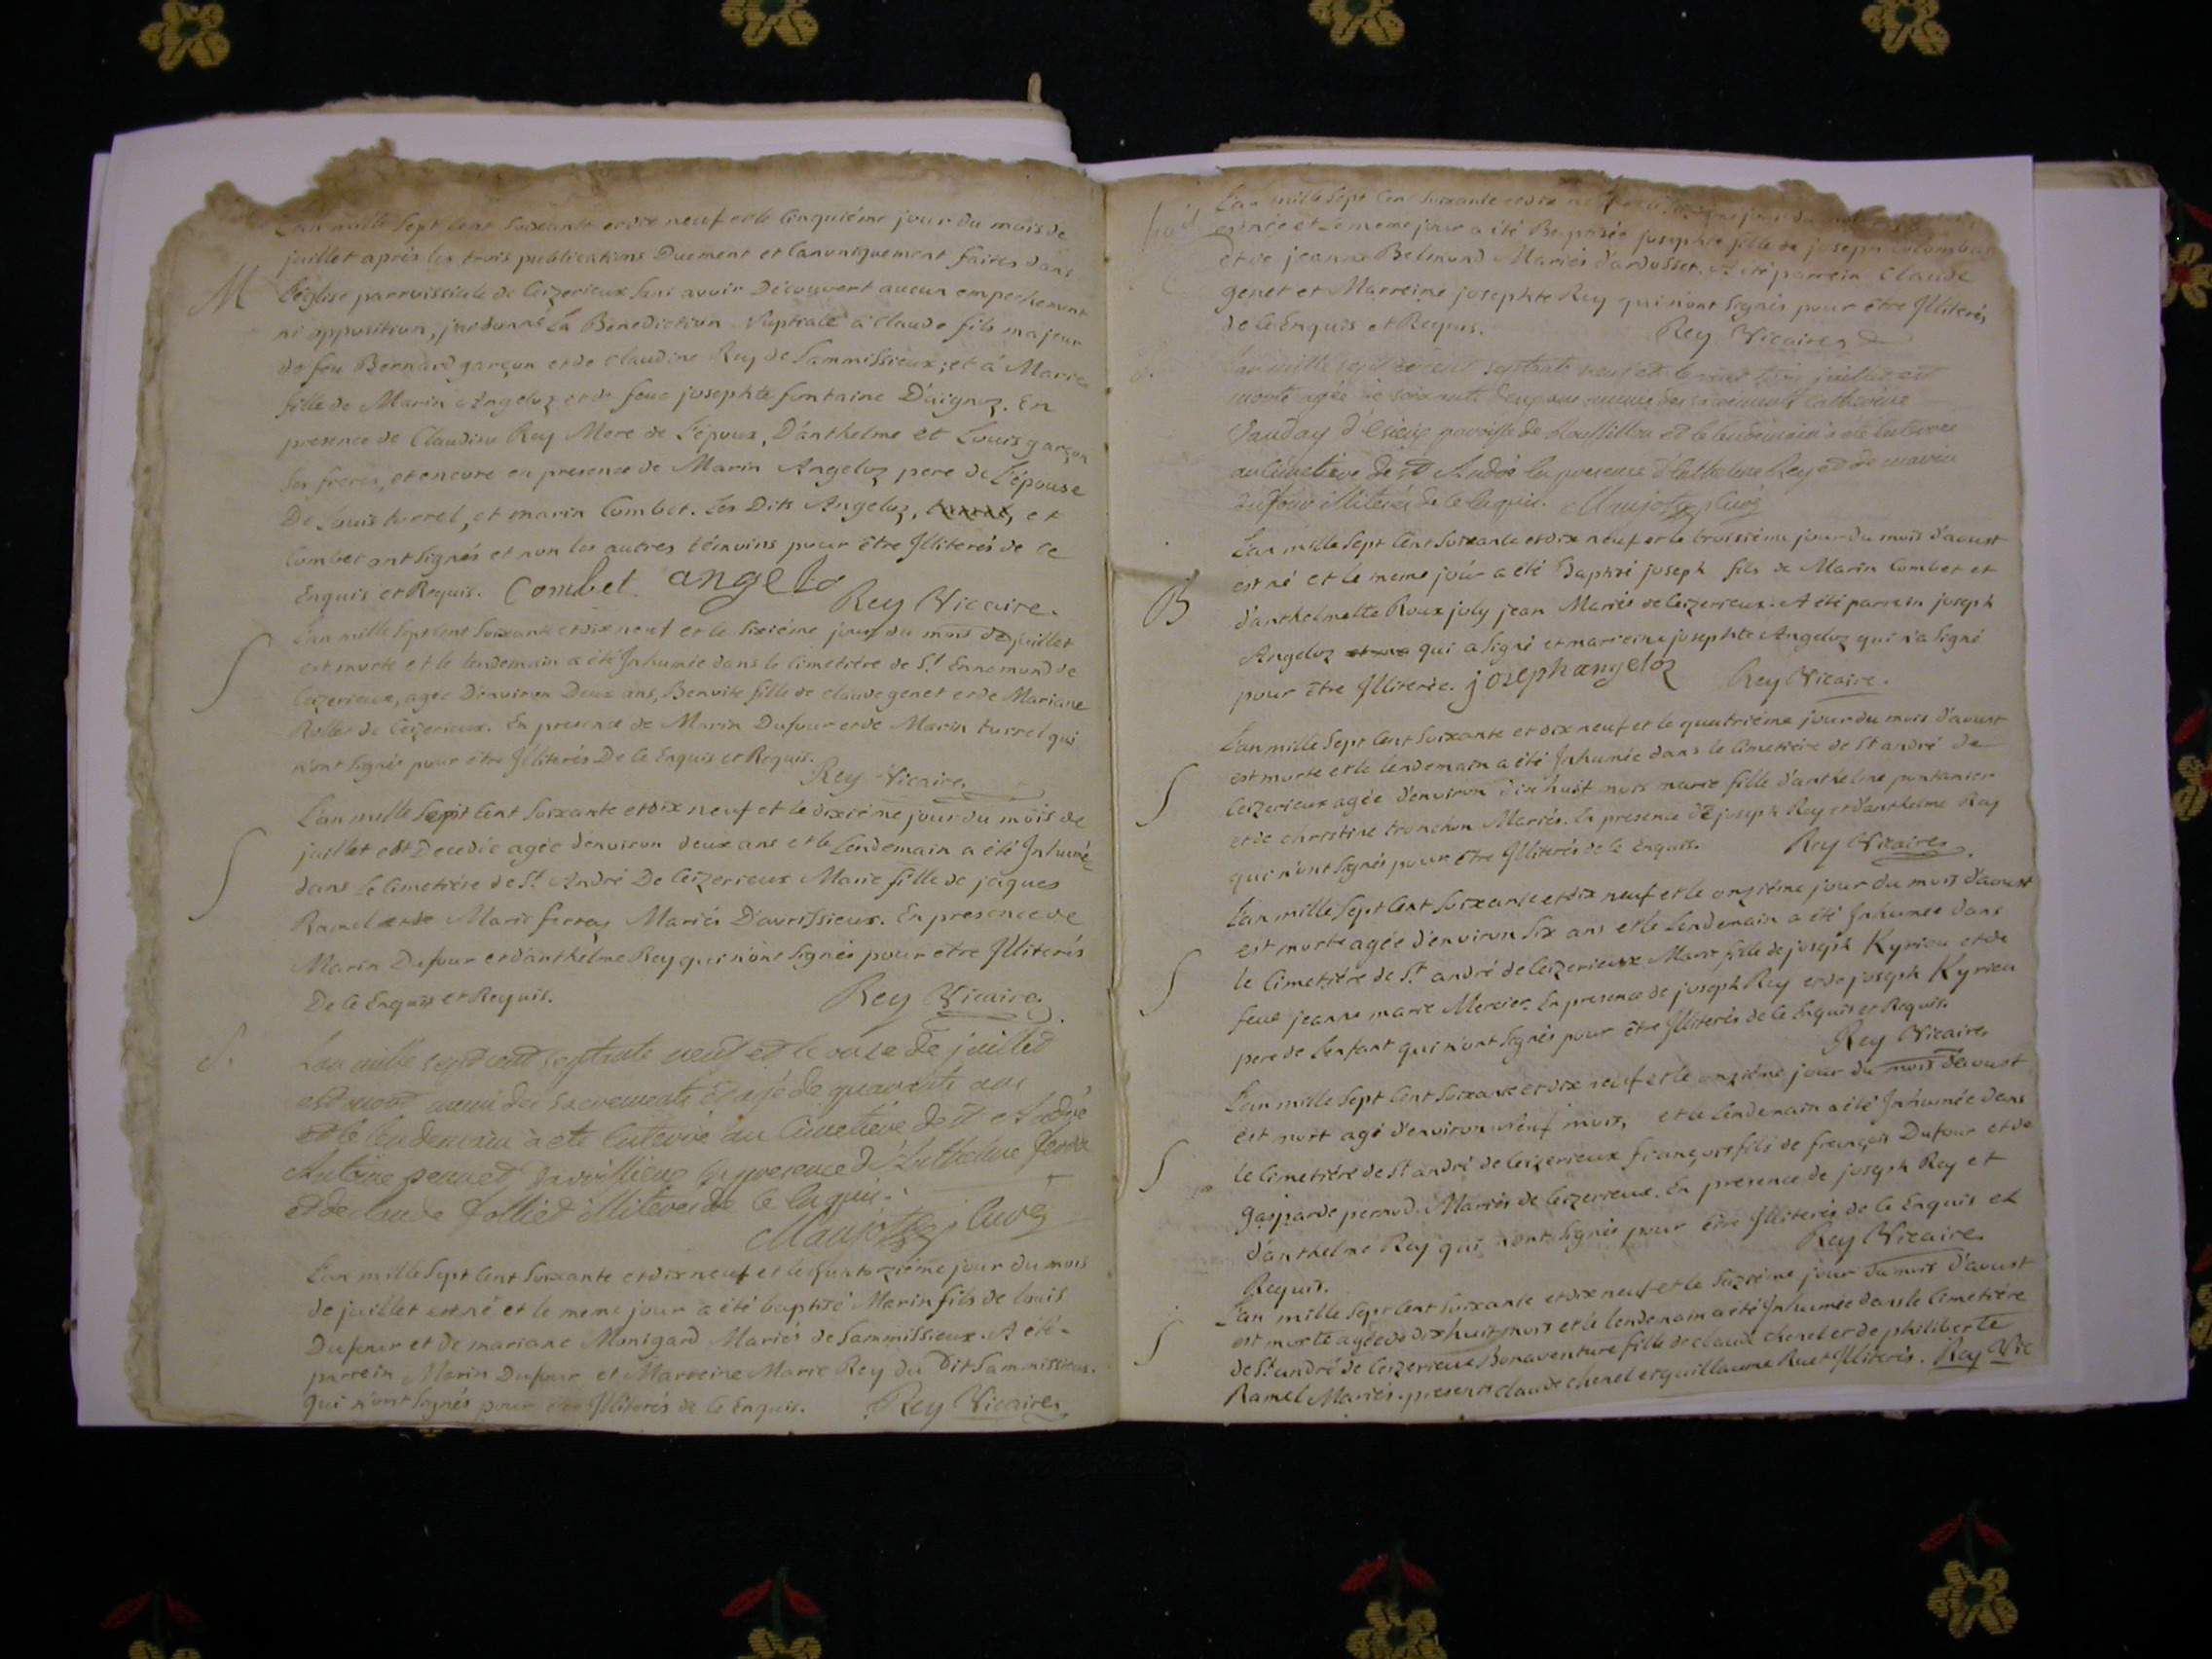 L'an mille Sept Cent Soixante et dix neuf et le Cinquiéme jour du mois de
juillet aprés les trois publications Duement et Canoniquement faites dans
M
L'église parroissiale de Ceizerieux Sans avoir Découvert aucun empechement
ni opposition, j'ai donné La Benediction Nuptiale à Claude fils majeur
de feu Bernard garçon et de Claudine Rey de Sammissieux; et à Marie
fille de Marin Angeloz et de feue josephte fontaine D'aignoz. En
presence de Claudine Rey Mere de L'époux, D'anthelme et Louis garçon
Ses freres, et encore en presence de Marin Angeloz pere de L'épouse
De Louis turrel, et marin Combet. Les Dits Angeloz, et
Combet ont Signés et non les autres témoins pour être Illiterés de Ce
Enquis et Requis. Combet angelo
Rey Vicaire.
L'an mille Sept Cent Soixante et dix neuf et le Sixiéme jour du mois de juillet
S
est morte et le lendemain a été Inhumée dans le Cimetiére de St Ennemond de
Ceizerieux, agée D'environ Deux ans, Benoite fille de Claude genet et de Mariane
Rollet de Ceizerieux. En presence de Marin Dufour et de Marin turrel qui
n'ont Signés pour être Illiterés De Ce Enquis et Requis.
Rey Vicaire.
L'an mille Sept Cent Soixante et dix neuf et le dixiéme jour du mois de
S
juillet est Decedée agée d'environ deux ans et le Lendemain a été Inhumée
dans le Cimetiére de St André De Ceizerieux Marie fille de jaques
Ramel et de Marie ferraz Mariés D'avrissieux. En presence de
Marin Dufour et d'anthelme Rey qui n'ont Signés pour etre Illiterés
De Ce Enquis et Requis.
Rey Vicaire.
S.
L'an mille sept cent septante neuf et le onze de juillet
est mort muni des sacrements et agé de quarante ans
et le lendemain a eté enterré au cimetiére de st André
Antoine pennet en presence d'Anthelme ferra
et de claude folliet illiterés de ce enquis.
Maujot curé
L'an mille Sept Cent Soixante et dix neuf et le quatorziéme jour du mois
de juillet est né et le meme jour a été baptisé Marin fils de Louis
Dufour et de mariane Monigard Mariés de Sammissieux. A été
parrein Marin Dufour et Marreine Marie Rey du Dit Sammissieux.
qui n'ont Signés pour être Illiterés de Ce Enquis. Rey Vicaire
L'an mille Sept Cent Soixante et dix
est née et le meme jour a été Baptisée josephte fille de joseph Colombet
et de jeanne Belmond Mariés d'ardosset. A été parrein Claude
genet et Marreine josephte Rey qui n'ont Signés pour être Illiterés
de Ce Enquis et Requis. Rey Vicaire
L'an mille sept cent septante neuf et le juillet est
morte agée de soixante munie des sacrements Catherine
Vauday parroisse de Roussillon et le lendemain a eté enterrée
au cimetiére de St André en presence d'Anthelme Rey et de marin
dufour illiterés de ce enquis. Maujot curé
L'an mille Sept Cent Soixante et dix neuf et le troisiéme jour du mois d'aoust
B
est né et le meme jour a été Baptisé joseph fils de Marin Combet et
d'anthelmette Roux joly jean Mariés de Ceizerieux. A été parrein joseph
Angeloz qui a Signé et marreine josephte Angeloz qui n'a Signé
pour être Illiterée. joseph angeloz Rey Vicaire.
L'an mille Sept Cent Soixante et dix neuf et le quatriéme jour du mois d'aoust
S
est morte et le lendemain a été Inhumée dans le Cimetiére de St andré de
Ceizerieux agée d'environ dix huit mois marie fille d'anthelme pontanier
et de christine tronchon Mariés. En presence de joseph Rey et d'anthelme Rey
qui n'ont Signés pour être Illiterés de Ce Enquis. Rey Vicaire
L'an mille Sept Cent Soixante et dix neuf et le onziéme jour du mois d'aoust
S
est morte agée d'environ Six ans et le Lendemain a été Inhumée dans
le Cimetiére de St andré de Ceizerieux Marie fille de joseph Kyrieu et de
feue jeanne marie Mercier. En presence de joseph Rey et de joseph Kyrieu
pere de L'enfant qui n'ont Signés pour être Illiterés de Ce Enquis et Requis.
Rey Vicaire
L'an mille Sept Cent Soixante et dix neuf et le onziéme jour du mois d'aoust
S
est mort agé d'environ neuf mois, et le Lendemain a été Inhumée dans
le Cimetiére de St andré de Ceizerieux françois fils de françois Dufour et de
gasparde pernod. Mariés de Ceizerieux. En presence de joseph Rey et
d'anthelme Rey qui n'ont Signés pour être Illiterés de Ce Enquis et
Requis. Rey Vicaire
L'an mille Sept Cent Soixante et dix neuf et le Seiziéme jour du mois d'aoust
S
est morte agée de dix huit mois et le lendemain a été Inhumée dans le Cimetiére
de St andré de Ceizerieux Bonaventure fille de claude chenel et de philiberte
Ramel Mariés. presents claude chenel et guillaume Ruet Illiterés. Rey Vic